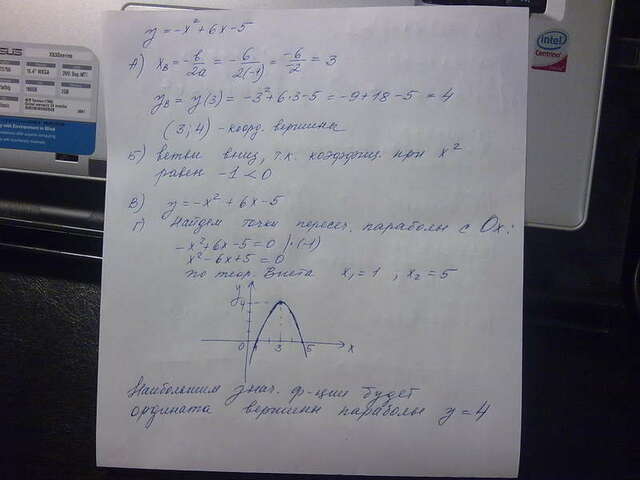 y = -x² + 6x - 5
А) xв = -b/2a = -6/2(-1) = -6/2 = 3
yв = y(3) = -3² + 6·3 - 5 = -9 + 18 - 5 = 4
(3; 4) - коорд. вершины
Б) ветви вниз, т.к. коэффиц. при x²
равен -1 < 0
В) y = -x² + 6x - 5
Г) Найдем точки пересеч. параболы с Ox:
-x² + 6x - 5 = 0 | ·(-1)
x² - 6x + 5 = 0
по теор. Виета x₁ = 1 , x₂ = 5
y
4
0 3 5 x
Наибольшим знач. ф-ции будет
ордината вершины параболы y = 4
intel